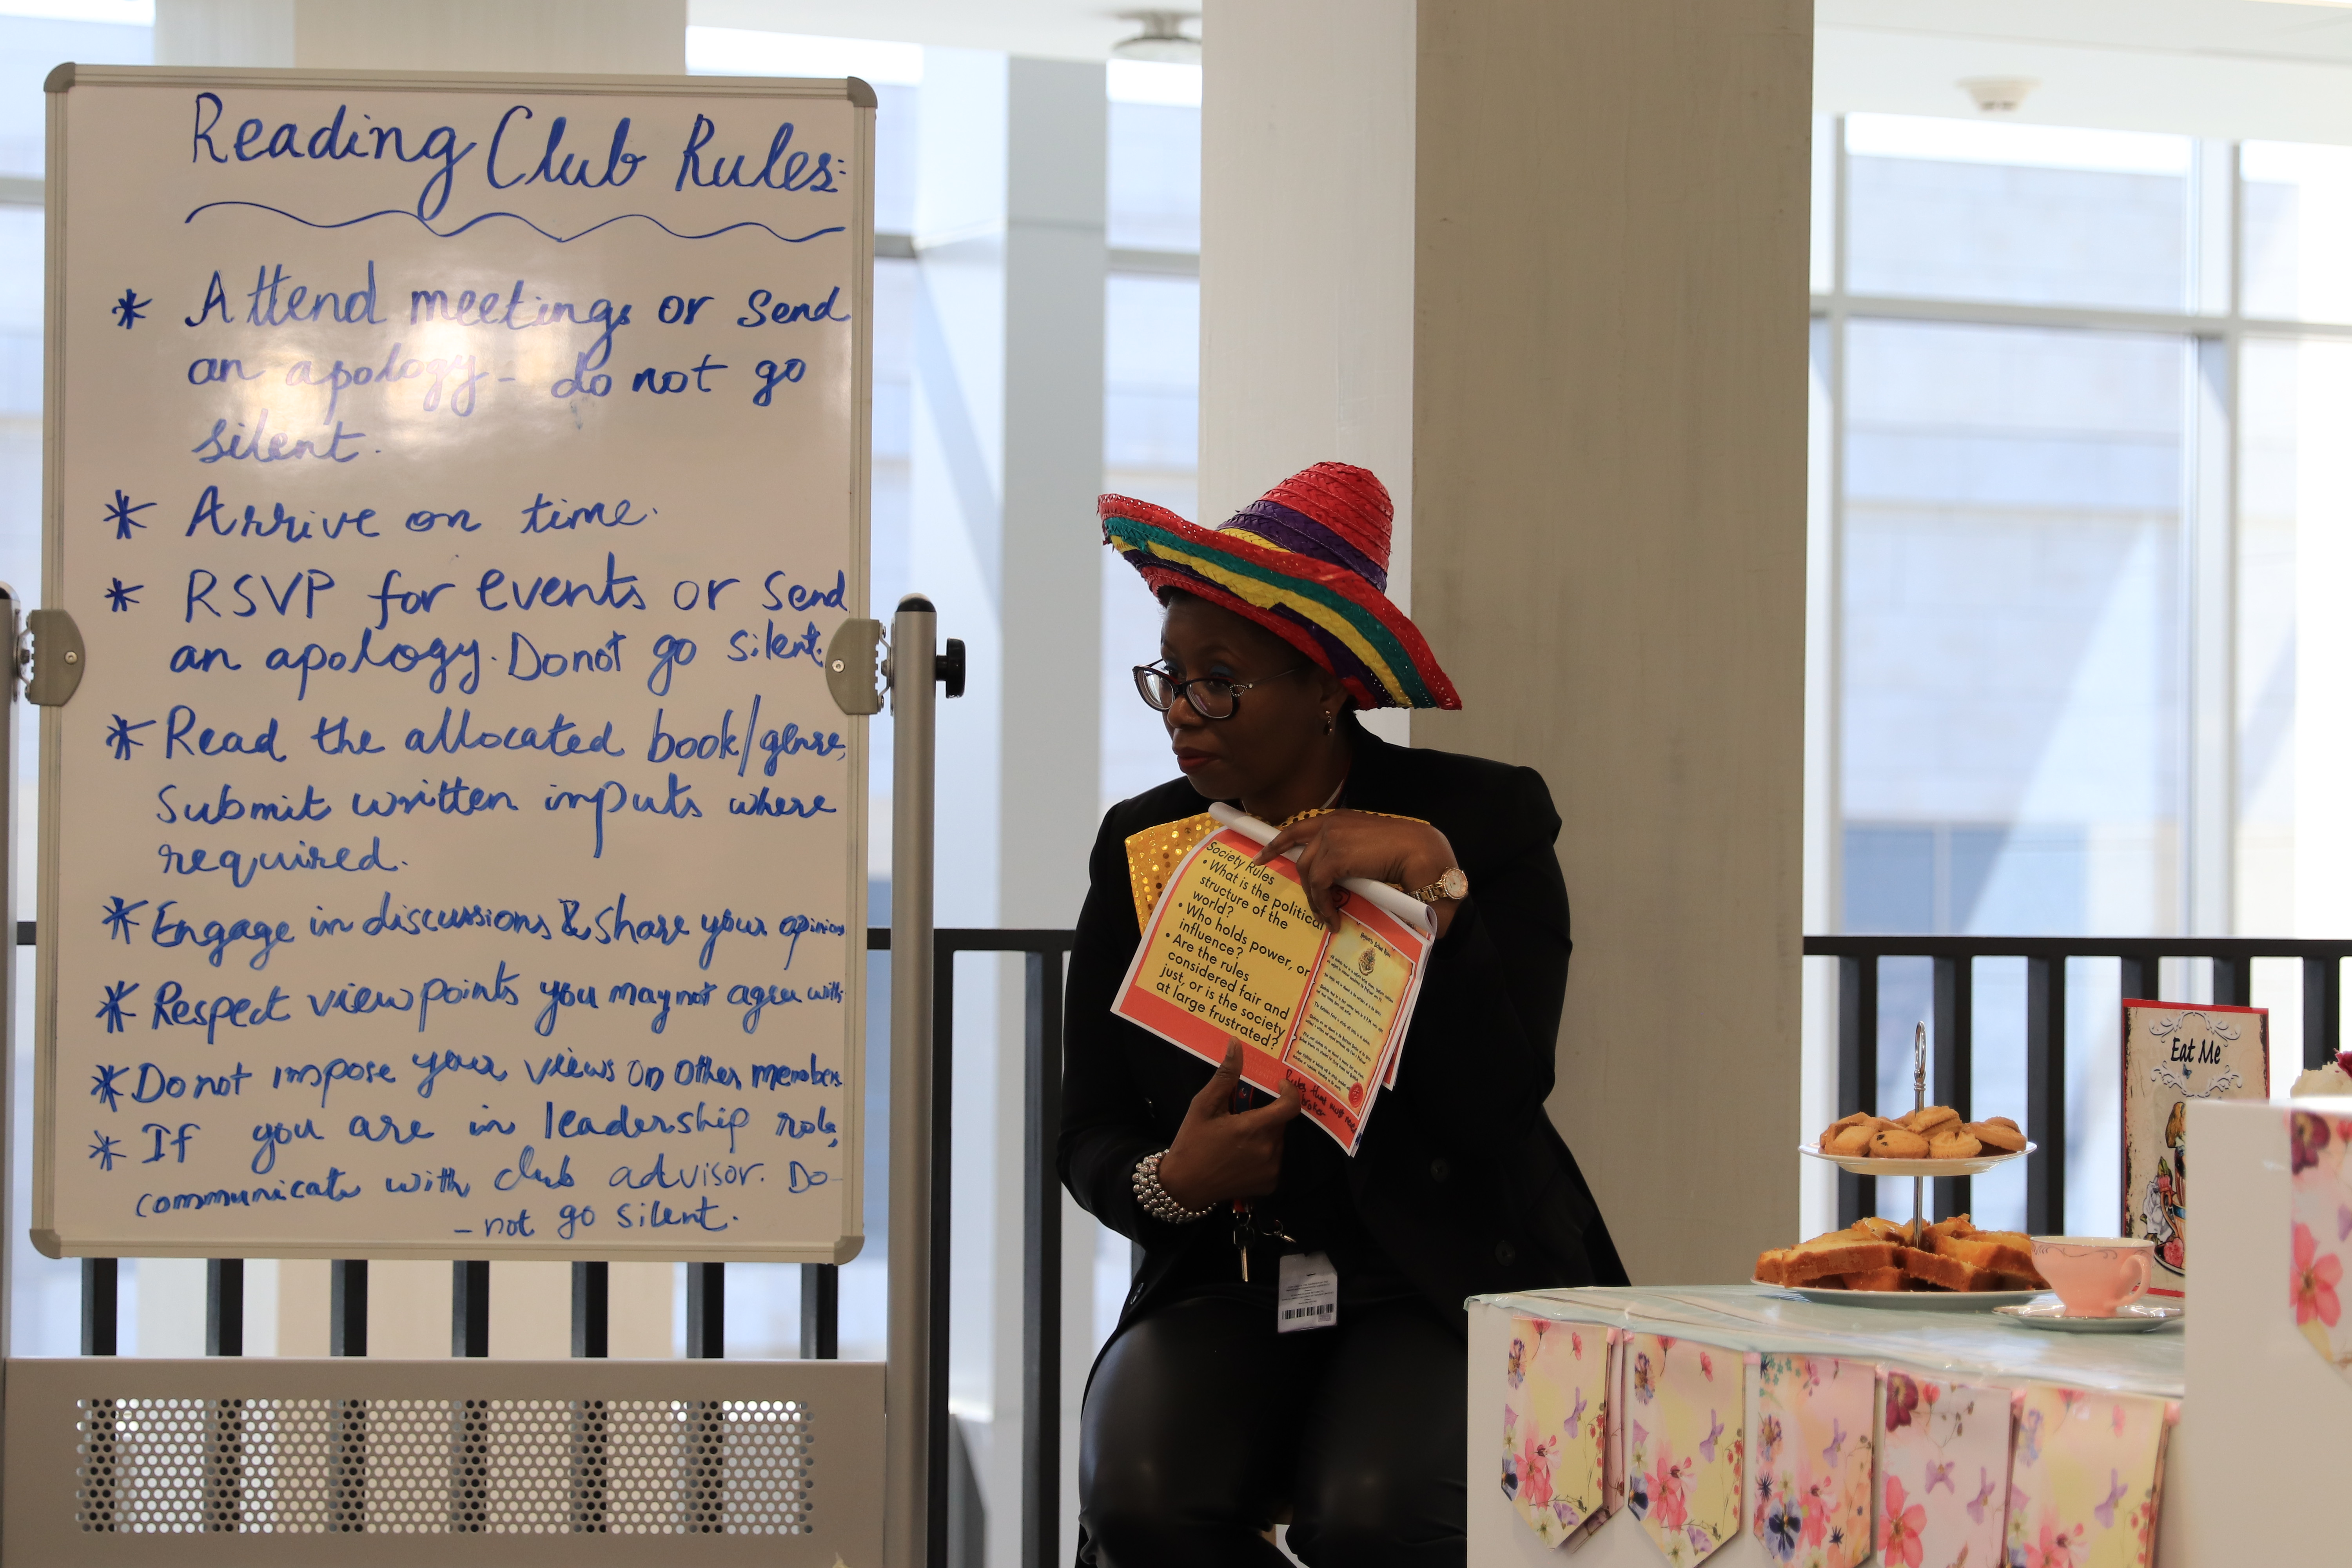 Reading Club Rules:
* Attend meetings or send
an apology - do not go
silent.
* Arrive on time.
* RSVP for events or send
an apology. Do not go silent.
* Read the allocated book/genre,
Submit written inputs where
required.
* Engage in discussions & share your opinions
* Respect view points you may not agree with
* Do not impose your views on other members
* If you are in leadership role,
communicate with club advisor. Do-
- not go silent.
Society Rules
• What is the political
structure of the
world?
• Who holds power, or
influence?
• Are the rules
considered fair and
just, or is the society
at large frustrated?
Rules that must not
Eat Me